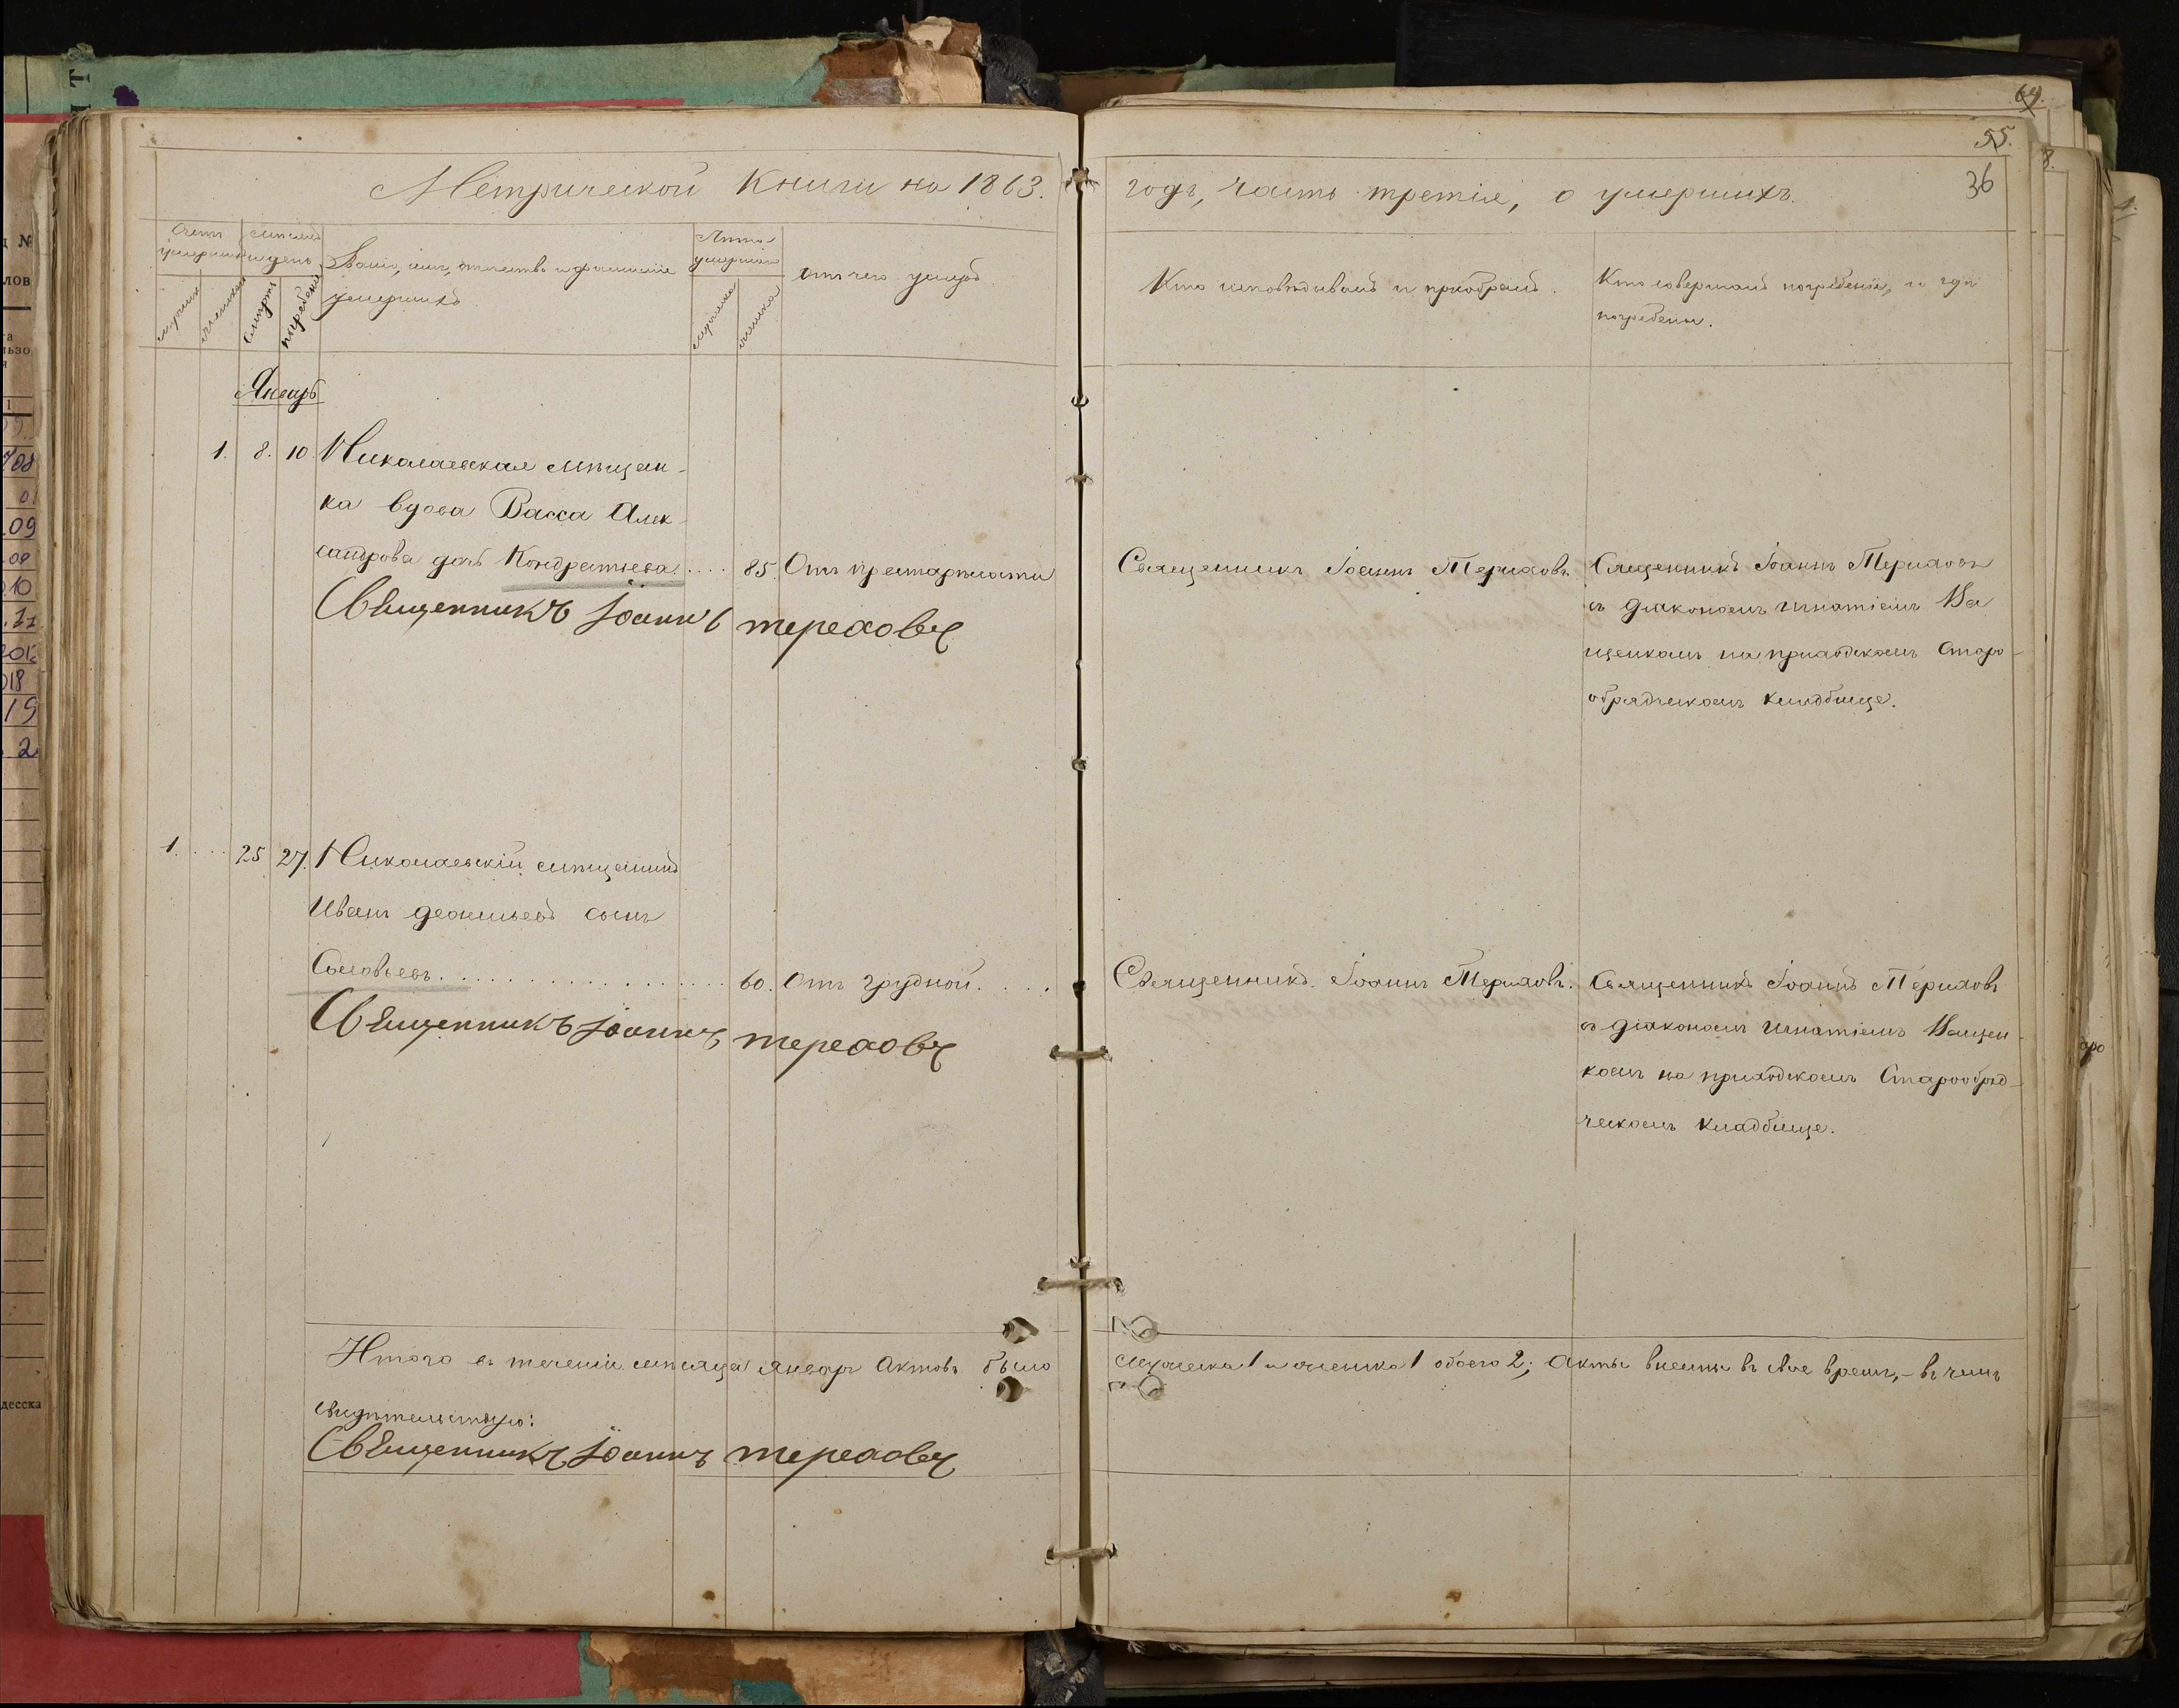 64.
55.
36
Метрической Книги на 1863.
годъ, часть третія, о умершихъ.
Счетъ умершихъ
мужеска
женска
Мѣсяцъ и день
смерти
погребенія
Званіе, имя, отчество и фамилія
умершихъ
Лѣта умершаго
мужеска
женска
отъ чего умеръ
Кто исповѣдывалъ и пріобщалъ.
Кто совершалъ погребеніе, и гдѣ
погребены.
Январь
1. 8. 10. Николаевская мѣщан-
ка вдова Васса Алек-
сандрова дочь Кондратьева .... 85. Отъ престарѣлости
Священникъ Іоаннъ Тереховъ
Священникъ Іоаннъ Тереховъ.
Священникъ Іоаннъ Тереховъ
съ діакономъ Игнатіемъ Ва
щенкомъ на приходскомъ Старо-
обрядческомъ кладбище.
1. ... 25 27. Николаевскій мѣщанинъ
Иванъ сынъ
Соловьевъ. ................ 60. Отъ грудной....
Священникъ Іоаннъ Тереховъ
Священникъ Іоаннъ Тереховъ.
Священникъ Іоаннъ Тереховъ
съ діакономъ Игнатіемъ Ващен-
комъ на приходскомъ Старообряд-
ческомъ кладбище.
Итого въ теченіи мѣсяца Январь Актовъ было
мужеска 1 и женска 1 обоего 2; Акты внесены въ свое время, - въ чемъ
свидѣтельствую:
Священникъ Іоаннъ Тереховъ